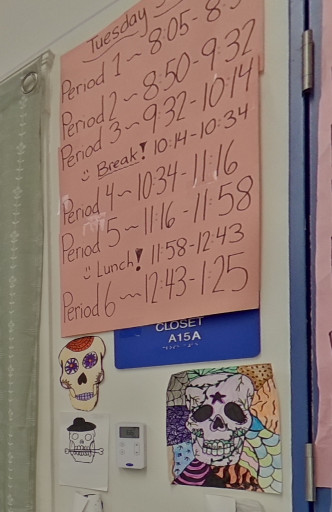 Tuesday
Period 1 ~ 8:05-8:5
Period 2 ~ 8:50-9:32
Period 3 ~ 9:32-10:14
Break! 10:14-10:34
Period 4 ~ 10:34-11:16
Period 5 ~ 11:16-11:58
Lunch! 11:58-12:43
Period 6 ~ 12:43-1:25
CLOSET
A15A